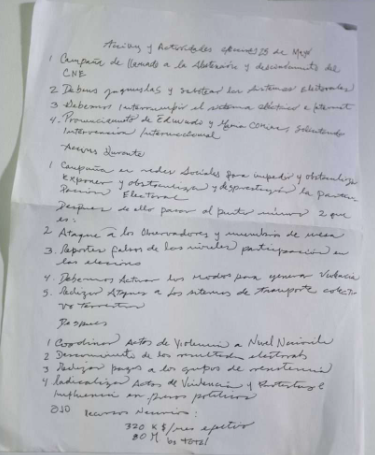 Acciones y Actividades 25 de Mayo
1 Campaña de llamado a la Abstención y desconocimiento del
CNE
2 Debemos y sabotear los Electorales
3 Debemos Interrumpir el sistema eléctrico e internet
4. Pronunciamiento de Edmundo y María Corina, Solicitando
Intervención Internacional
Acciones Durante
1 Campaña en redes Sociales para impedir y obstaculizar
Exponer y obstaculizar y la
Electoral
Después de ello pasar al punto número 2 que
es:
2 Ataque a los Observadores y miembros de mesa
3 Reportes falsos de los niveles participación en
las elecciones
4 Debemos Activar los para generar Violencia
5. Realizar Ataques a los sistemas de transporte
terrestre
Despues
1 Coordinar Actos de Violencia a Nivel Nacional
2 Desconocimiento de los resultados electorales
3 Realizar pagos a los grupos de resistencia
4 Radicalizar Actos de Violencia y
Influencia en presos políticos
OJO Recursos Necesarios:
320 K $/mes efectivo
total